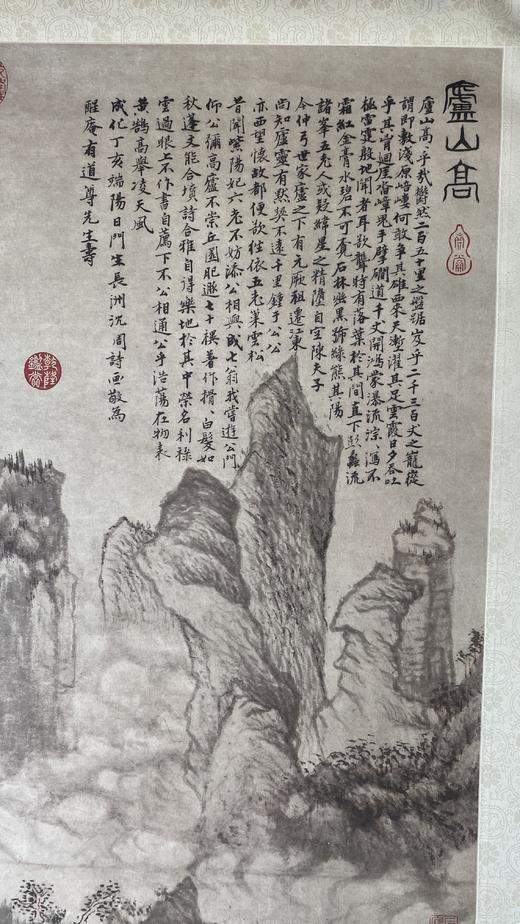 廬山高
廬山高高乎哉鬱然二百五十里之盤踞岌乎二千三百丈之巃嵸
謂即敷淺原培嶁何敢爭其雄西來天塹濯其足雲霞日夕吞吐
乎其胷迴崖沓嶂鬼手擘磵道千丈開鴻蒙瀑流淙瀉不
極雷霆殷地聞者耳欲聾時有落葉於其間直下彭蠡流
霜紅金膏水碧不可覓石林幽黑號綠熊其陽
諸峯五老人或疑緯星之精墮自空陳夫子
今仲弓世家廬之下有元厥祖遷江東
尚知廬靈有默契不遠千里鍾于公公
亦西望懷故都便欲往依五老巢雲松
昔聞紫陽妃六老不妨添公相與成七翁我嘗遊公門
仰公彌高廬不崇丘園肥遯七十禩著作揩揩白髮如
秋蓬文能合墳詩合雅自得樂地於其中榮名利祿
雲過眼上不作書自薦下不公相通公乎浩蕩在物表
黃鵠高舉凌天風
成化丁亥端陽日門生長洲沈周詩畫敬為
醒庵有道尊先生壽
乾隆鑑賞